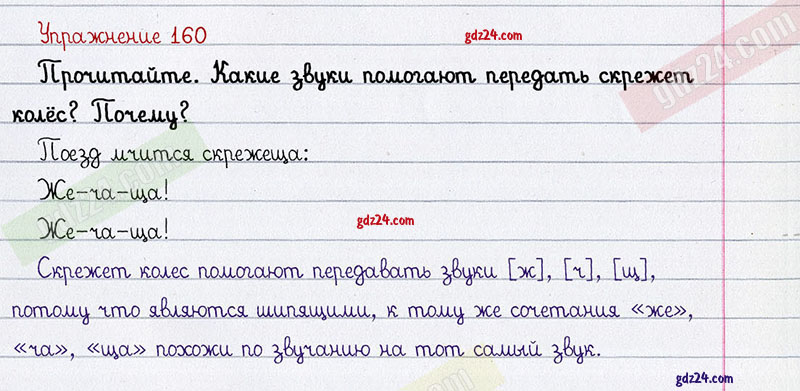 Упражнение 160
gdz24.com
gdz24.com
Прочитайте. Какие звуки помогают передать скрежет
колёс? Почему?
Поезд мчится скрежеща:
Же-ча-ща!
gdz24.com
Же-ча-ща!
gdz24.com
Скрежет колес помогают передавать звуки [ж], [ч], [щ],
потому что являются шипящими, к тому же сочетания «же»,
«ча», «ща» похожи по звучанию на тот самый звук.
gdz24.com